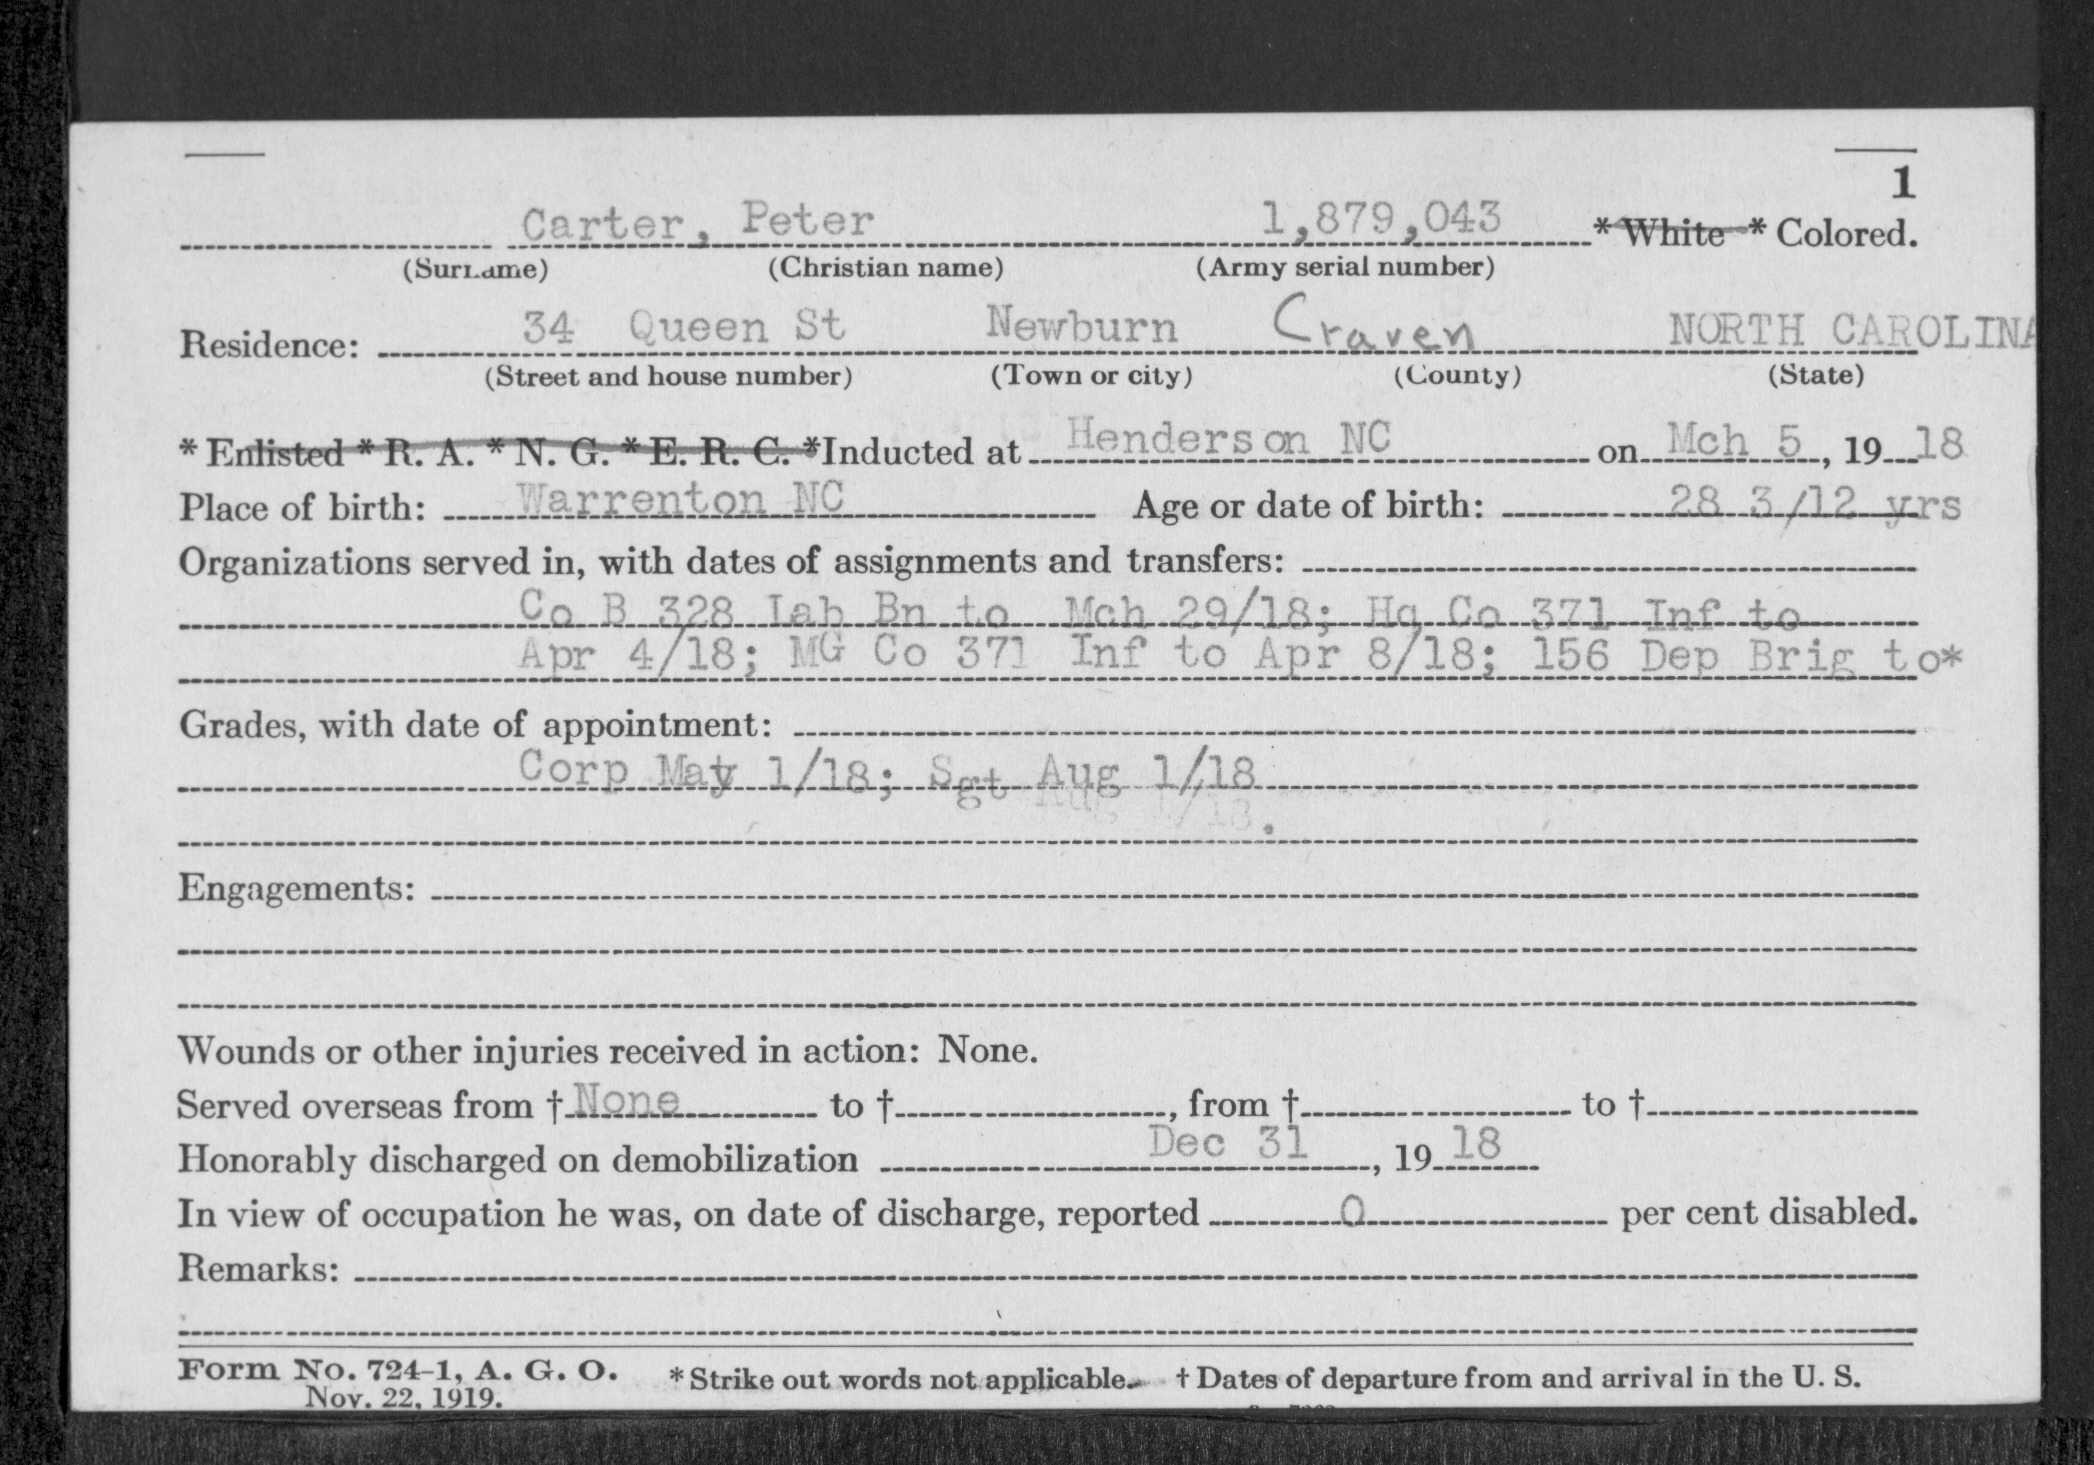 1
Carter, Peter 1,879,043 * White * Colored.
(Surname) (Christian name) (Army serial number)
Residence: 34 Queen St Newburn Craven NORTH CAROLINA
(Street and house number) (Town or city) (County) (State)
* Enlisted * R. A. * N. G. * E. R. C. *Inducted at Henderson NC on Mch 5, 19 18
Place of birth: Warrenton NC Age or date of birth: 28 3/12 yrs
Organizations served in, with dates of assignments and transfers:
Co B 328 Lab Bn to Mch 29/18; Hq Co 371 Inf to
Apr 4/18; MG Co 371 Inf to Apr 8/18; 156 Dep Brig to*
Grades, with date of appointment:
Corp May 1/18; Sgt Aug 1/18
Aug 1/18.
Engagements:
Wounds or other injuries received in action: None.
Served overseas from † None to †, from † to †
Honorably discharged on demobilization Dec 31, 19 18
In view of occupation he was, on date of discharge, reported 0 per cent disabled.
Remarks:
Form No. 724-1, A. G. O. * Strike out words not applicable. † Dates of departure from and arrival in the U. S.
Nov. 22, 1919.